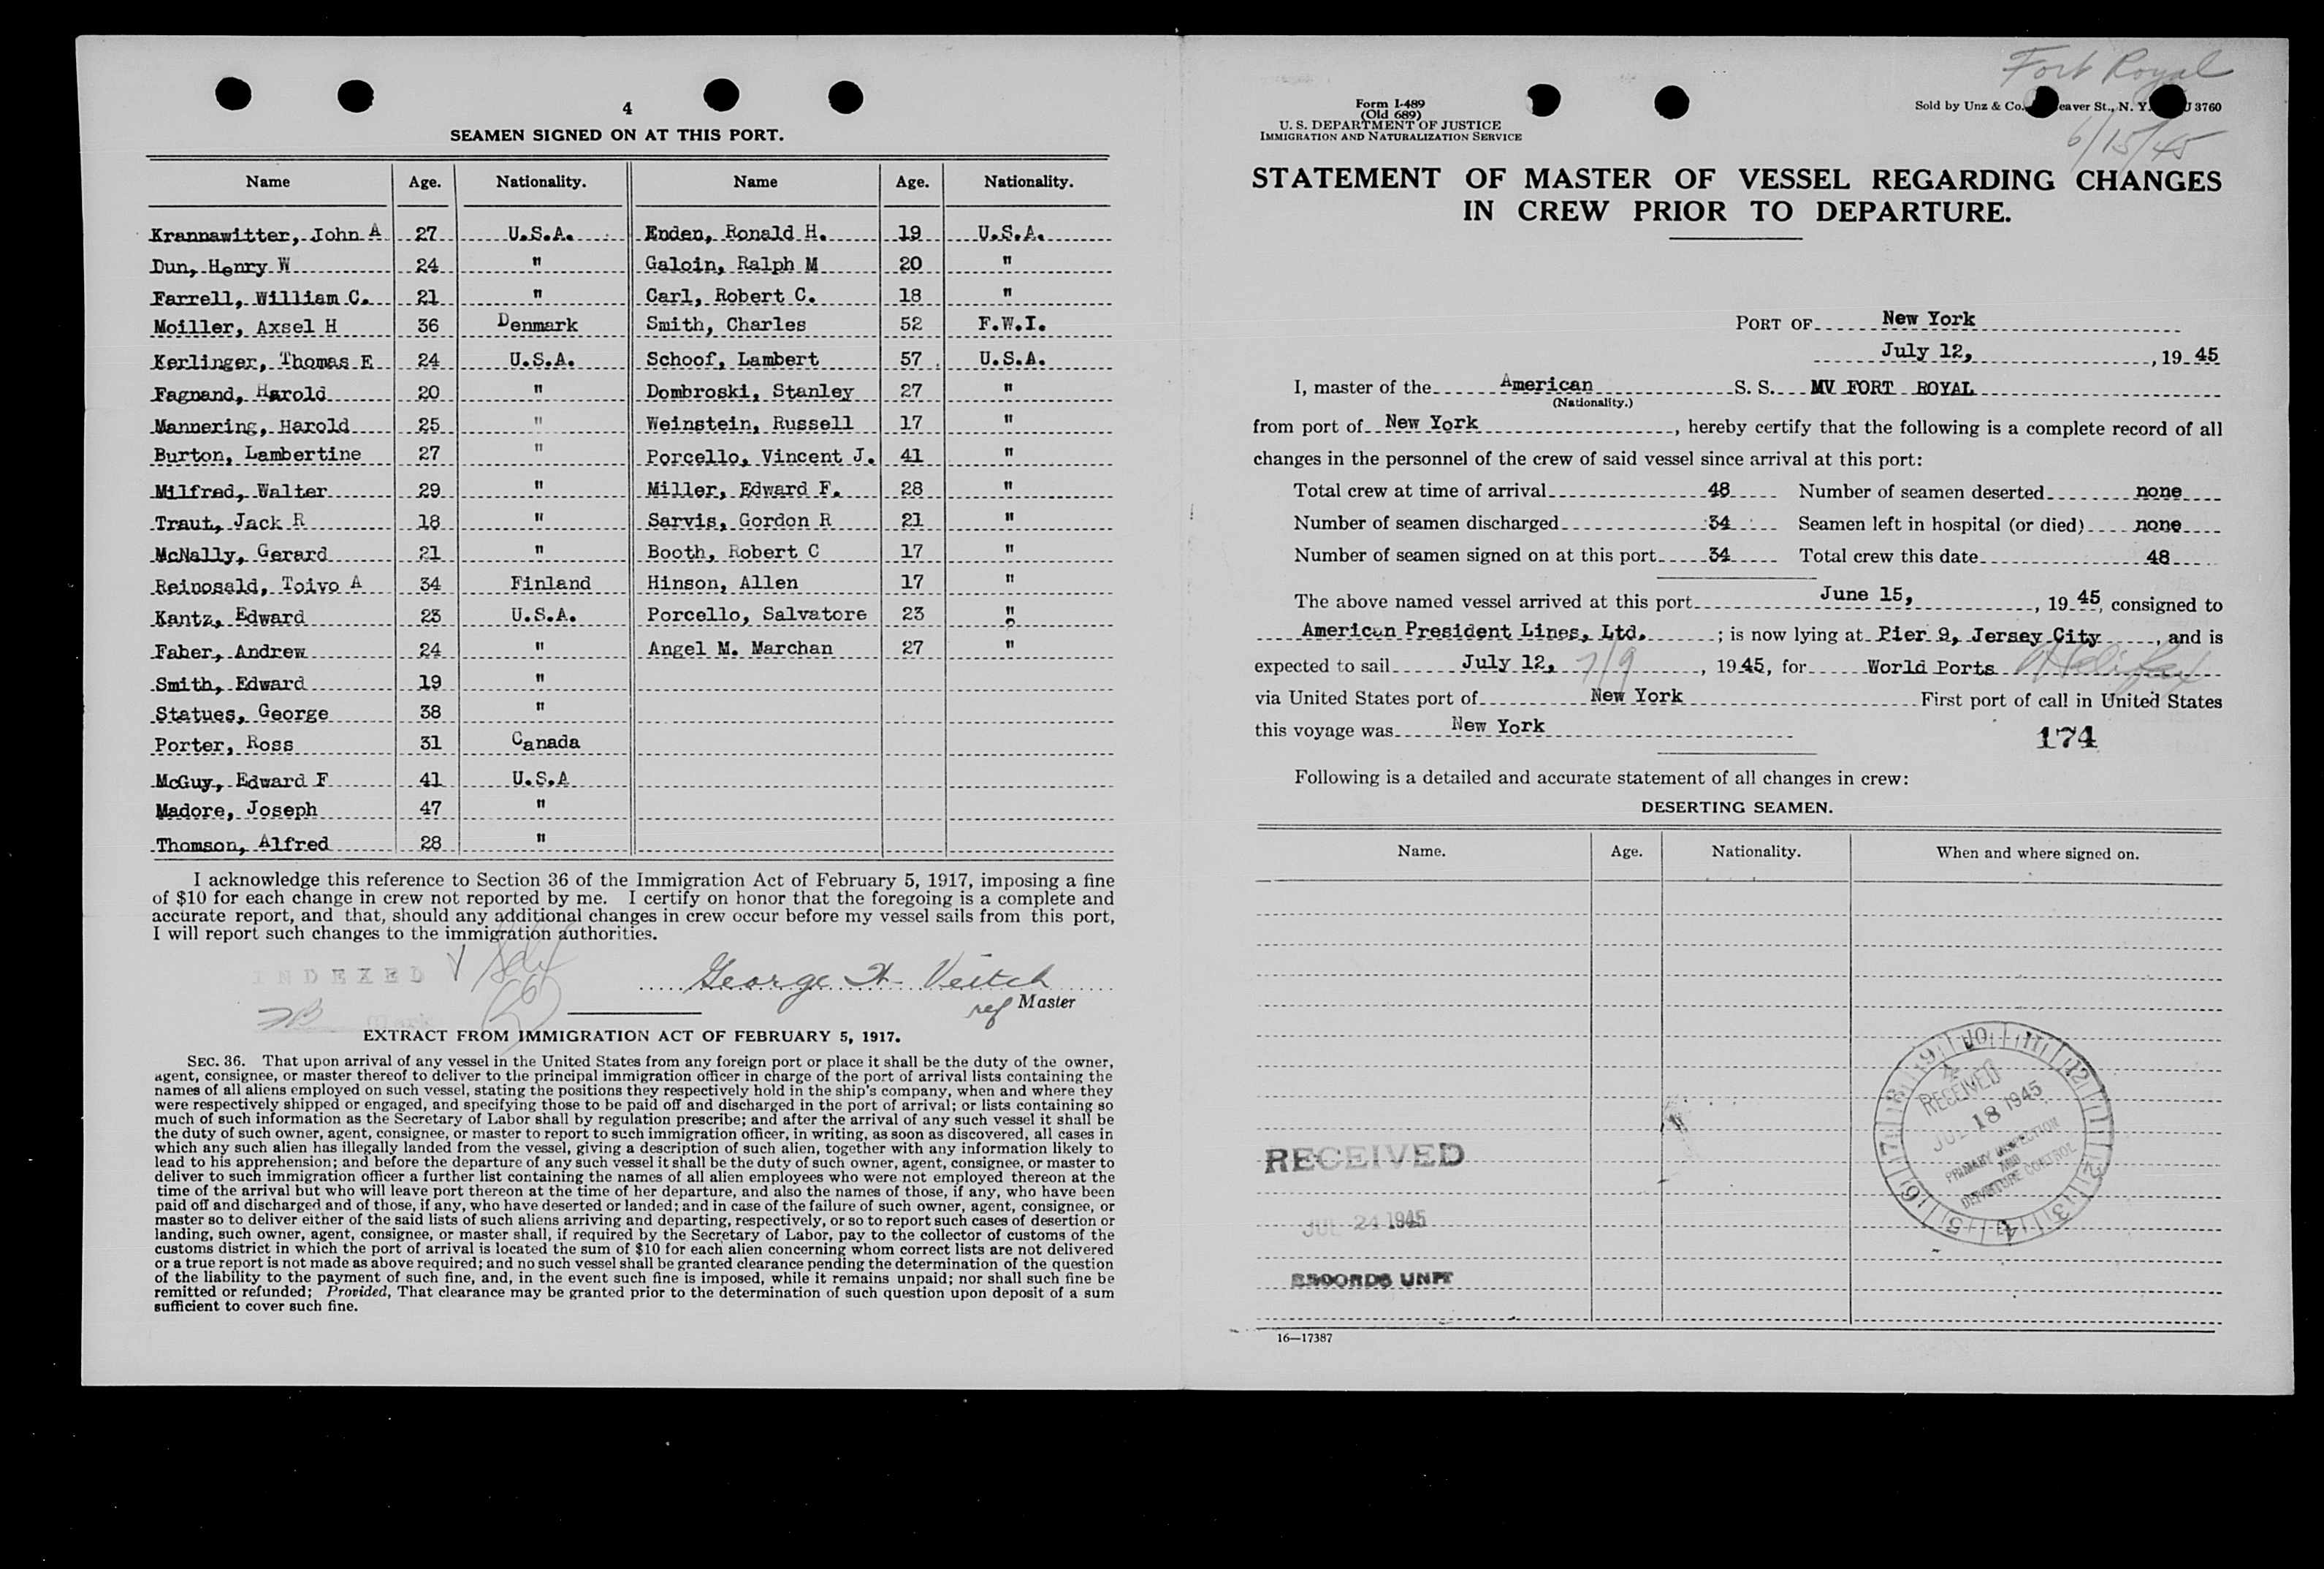 4
SEAMEN SIGNED ON AT THIS PORT.
Name Age. Nationality. Name Age. Nationality.
Krannawitter, John A 27 U.S.A. Enden, Ronald H. 19 U.S.A.
Dun, Henry W 24 " Galoin, Ralph M 20 "
Farrell, William C. 21 " Carl, Robert C. 18 "
Moiller, Axsel H 36 Denmark Smith, Charles 52 F.W.I.
Kerlinger, Thomas E 24 U.S.A. Schoof, Lambert 57 U.S.A.
Fagnand, Harold 20 " Dombroski, Stanley 27 "
Mannering, Harold 25 " Weinstein, Russell 17 "
Burton, Lambertine 27 " Porcello, Vincent J. 41 "
Milfred, Walter 29 " Miller, Edward F. 28 "
Traut, Jack R 18 " Sarvis, Gordon R 21 "
McNally, Gerard 21 " Booth, Robert C 17 "
Reinosald, Toivo A 34 Finland Hinson, Allen 17 "
Kantz, Edward 23 U.S.A. Porcello, Salvatore 23 "
Faher, Andrew 24 " Angel M. Marchan 27 "
Smith, Edward 19 "
Statues, George 38 "
Porter, Ross 31 Canada
McGuy, Edward F 41 U.S.A
Madore, Joseph 47 "
Thomson, Alfred 28 "
I acknowledge this reference to Section 36 of the Immigration Act of February 5, 1917, imposing a fine
of $10 for each change in crew not reported by me. I certify on honor that the foregoing is a complete and
accurate report, and that, should any additional changes in crew occur before my vessel sails from this port,
I will report such changes to the immigration authorities.
INDEXED
George H Veitch
ref Master
EXTRACT FROM IMMIGRATION ACT OF FEBRUARY 5, 1917.
SEC. 36. That upon arrival of any vessel in the United States from any foreign port or place it shall be the duty of the owner,
agent, consignee, or master thereof to deliver to the principal immigration officer in charge of the port of arrival lists containing the
names of all aliens employed on such vessel, stating the positions they respectively hold in the ship's company, when and where they
were respectively shipped or engaged, and specifying those to be paid off and discharged in the port of arrival; or lists containing so
much of such information as the Secretary of Labor shall by regulation prescribe; and after the arrival of any such vessel it shall be
the duty of such owner, agent, consignee, or master to report to such immigration officer, in writing, as soon as discovered, all cases in
which any such alien has illegally landed from the vessel, giving a description of such alien, together with any information likely to
lead to his apprehension; and before the departure of any such vessel it shall be the duty of such owner, agent, consignee, or master to
deliver to such immigration officer a further list containing the names of all alien employees who were not employed thereon at the
time of the arrival but who will leave port thereon at the time of her departure, and also the names of those, if any, who have been
paid off and discharged and of those, if any, who have deserted or landed; and in case of the failure of such owner, agent, consignee, or
master so to deliver either of the said lists of such aliens arriving and departing, respectively, or so to report such cases of desertion or
landing, such owner, agent, consignee, or master shall, if required by the Secretary of Labor, pay to the collector of customs of the
customs district in which the port of arrival is located the sum of $10 for each alien concerning whom correct lists are not delivered
or a true report is not made as above required; and no such vessel shall be granted clearance pending the determination of the question
of the liability to the payment of such fine, and, in the event such fine is imposed, while it remains unpaid; nor shall such fine be
remitted or refunded; Provided, That clearance may be granted prior to the determination of such question upon deposit of a sum
sufficient to cover such fine.
Fort Royal
Form I-489
(Old 689)
U. S. DEPARTMENT OF JUSTICE
IMMIGRATION AND NATURALIZATION SERVICE
Sold by Unz & Co. eaver St., N. Y. 3760
6/15/45
STATEMENT OF MASTER OF VESSEL REGARDING CHANGES
IN CREW PRIOR TO DEPARTURE.
PORT OF New York
July 12, , 19 45
I, master of the American S. S. MV FORT ROYAL
(Nationality.)
from port of New York , hereby certify that the following is a complete record of all
changes in the personnel of the crew of said vessel since arrival at this port:
Total crew at time of arrival 48 Number of seamen deserted none
Number of seamen discharged 34 Seamen left in hospital (or died) none
Number of seamen signed on at this port 34 Total crew this date 48
The above named vessel arrived at this port June 15, , 19 45, consigned to
American President Lines, Ltd. ; is now lying at Pier 9, Jersey City , and is
expected to sail July 12, 7/9 , 1945, for World Ports Halifax
via United States port of New York First port of call in United States
this voyage was New York
174
Following is a detailed and accurate statement of all changes in crew:
DESERTING SEAMEN.
Name. Age. Nationality. When and where signed on.
RECEIVED
JUL 18 1945
PRIMARY INSPECTION
AND
DEPARTURE CONTROL
RECEIVED
JUL 24 1945
RECORDS UNIT
16—17387